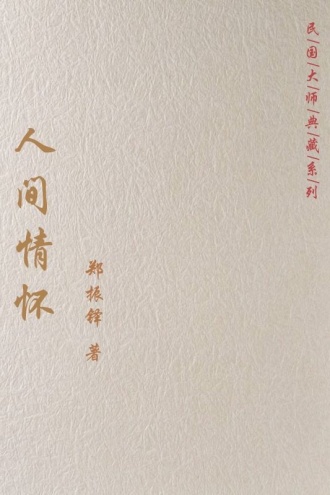 民国大师典藏系列
人间情怀
郑振铎 著